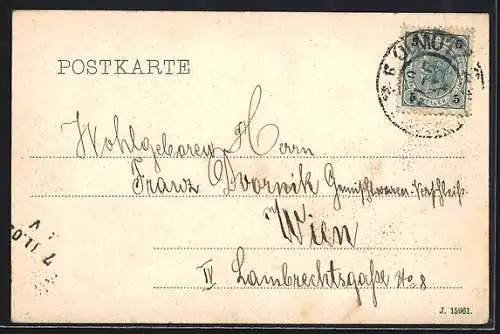 POSTKARTE
5 5
5 5
Wohlgeboren Herrn
Franz Dvornik Gemischtwaren-Verschleiß
Wien
IV Lambrechtsgaße No 8
J. 15961.